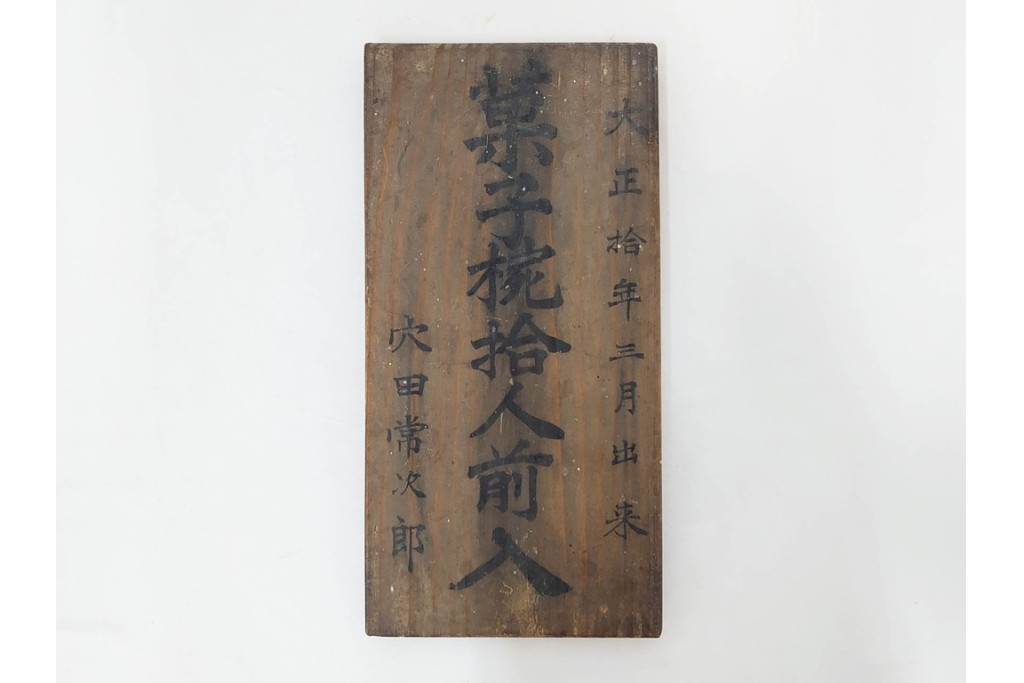 大正拾年三月出来
菓子椀拾人前入
穴田常次郎